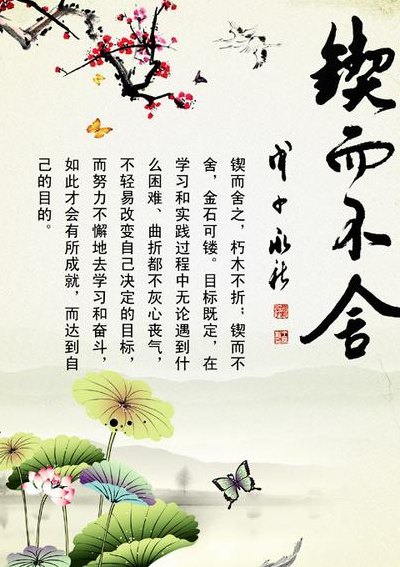 锲而不舍
戊子
锲而舍之，朽木不折；锲而不
舍，金石可镂。目标既定，在
学习和实践过程中无论遇到什
么困难、曲折都不灰心丧气，
不轻易改变自己决定的目标，
而努力不懈地去学习和奋斗，
如此才会有所成就，而达到自
己的目的。